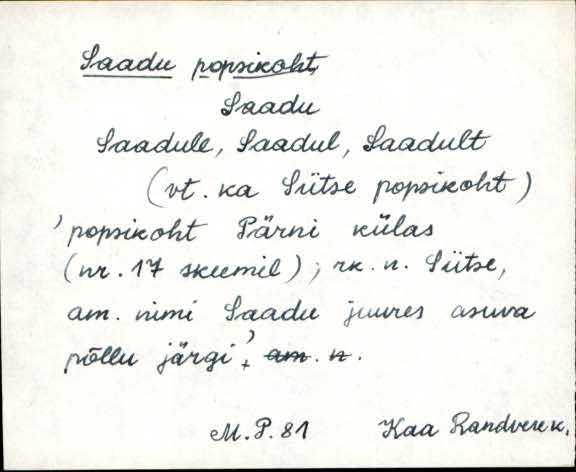 Saadu popsikoht,
Saadu
Saadule, Saadul, Saadult
(vt. ka Siitse popsikoht)
'popsikoht Pärni külas
(nr. 17 skeemil); rk. n. Siitse,
am. nimi Saadu juures asuva
põllu järgi', am. n.
M. P. 81 Kaa Randvere k.